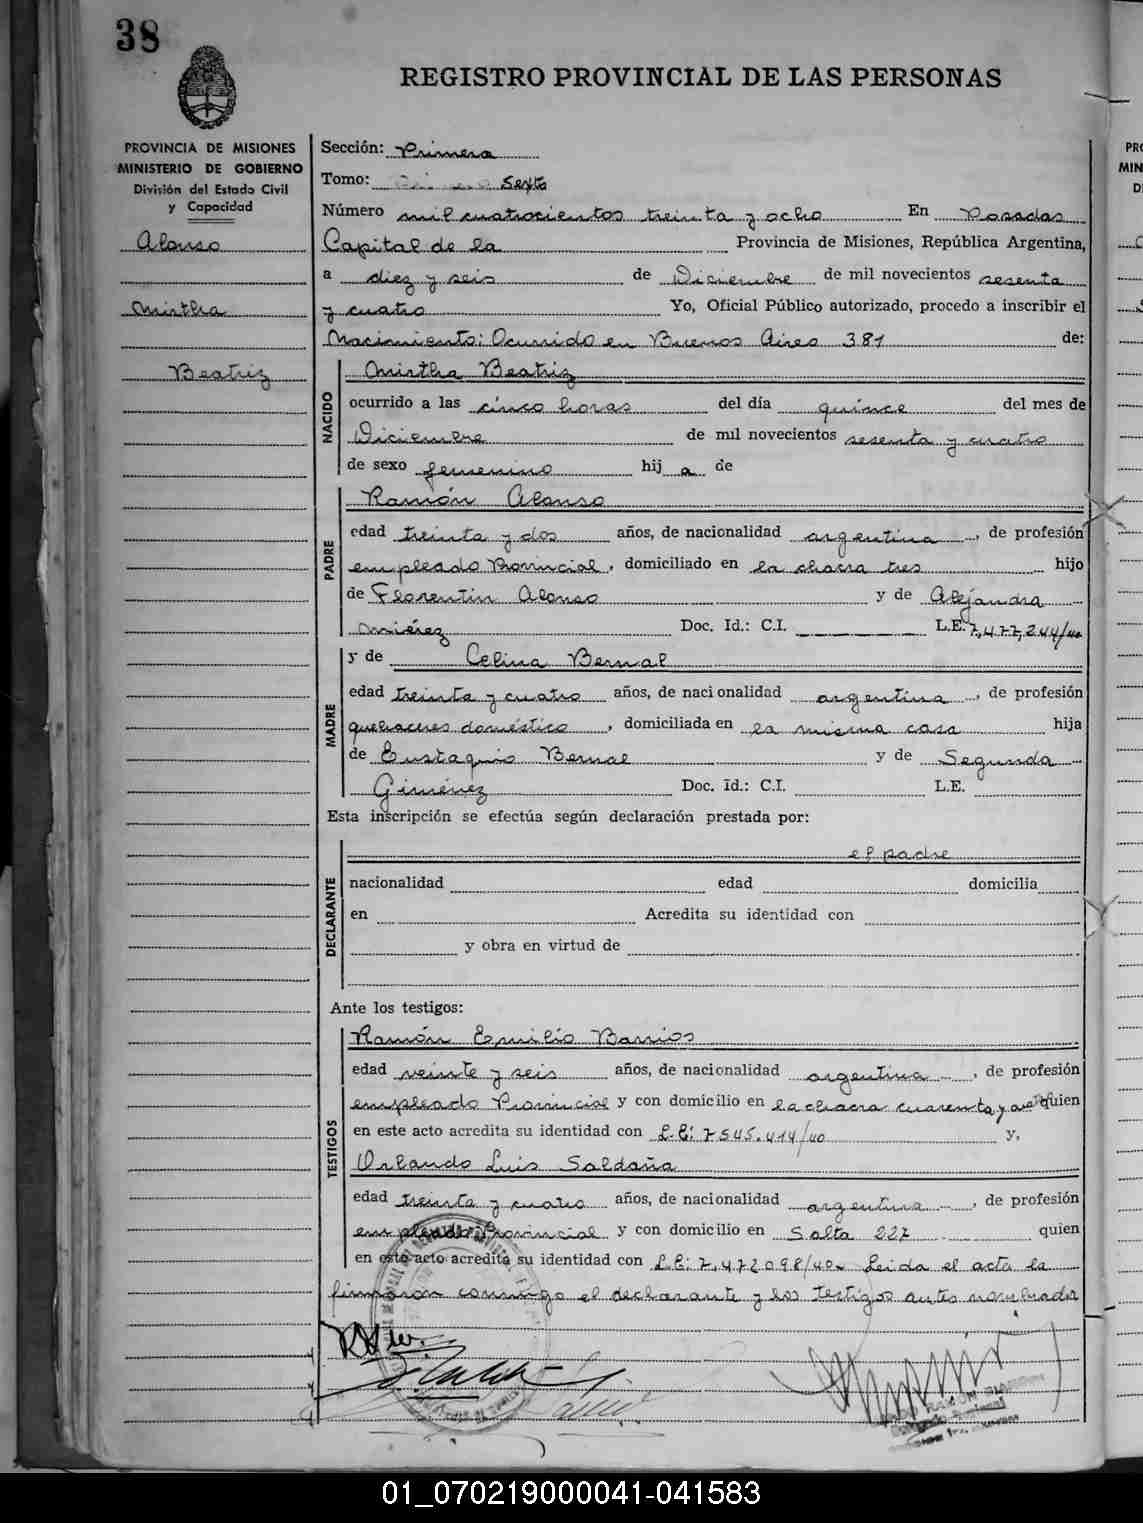 38
REGISTRO PROVINCIAL DE LAS PERSONAS
PROVINCIA DE MISIONES
MINISTERIO DE GOBIERNO
División del Estado Civil
y Capacidad
Alonso
Mirtha
Beatriz
Sección: Primera
Tomo: Sexto
Número mil cuatrocientos treinta y ocho En Posadas
Capital de la Provincia de Misiones, República Argentina,
a diez y seis de Diciembre de mil novecientos sesenta
y cuatro Yo, Oficial Público autorizado, procedo a inscribir el
Nacimiento: Ocurrido en Buenos Aires 381 de:
NACIDO
Mirtha Beatriz
ocurrido a las cinco horas del día quince del mes de
Diciembre de mil novecientos sesenta y cuatro
de sexo femenino hij a de
PADRE
Ramón Alonso
edad treinta y dos años, de nacionalidad argentina, de profesión
empleado Provincial, domiciliado en la chacra tres hijo
de Florentin Alonso y de Alejandra
Miérez Doc. Id.: C.I. L.E. 7,477,244/40
MADRE
y de Celina Bernal
edad treinta y cuatro años, de nacionalidad argentina, de profesión
quehaceres doméstico, domiciliada en la misma casa hija
de Eustaquio Bernal y de Segunda
Giménez Doc. Id.: C.I. L.E.
Esta inscripción se efectúa según declaración prestada por:
DECLARANTE
el padre
nacionalidad edad domicilia
en Acredita su identidad con
y obra en virtud de
Ante los testigos:
TESTIGOS
Ramón Emilio Barrios
edad veinte y seis años, de nacionalidad argentina, de profesión
empleado Provincial y con domicilio en la chacra cuarenta y quien
en este acto acredita su identidad con L.E: 7545.414/40 y,
Orlando Luis Saldaña
edad treinta y cuatro años, de nacionalidad argentina, de profesión
empleado Provincial y con domicilio en Salta 227 quien
en este acto acredita su identidad con L.E: 7,472098/40. Leida el acta la
firmaron conmigo el declarante y los testigos antes nombrados
01_070219000041-041583